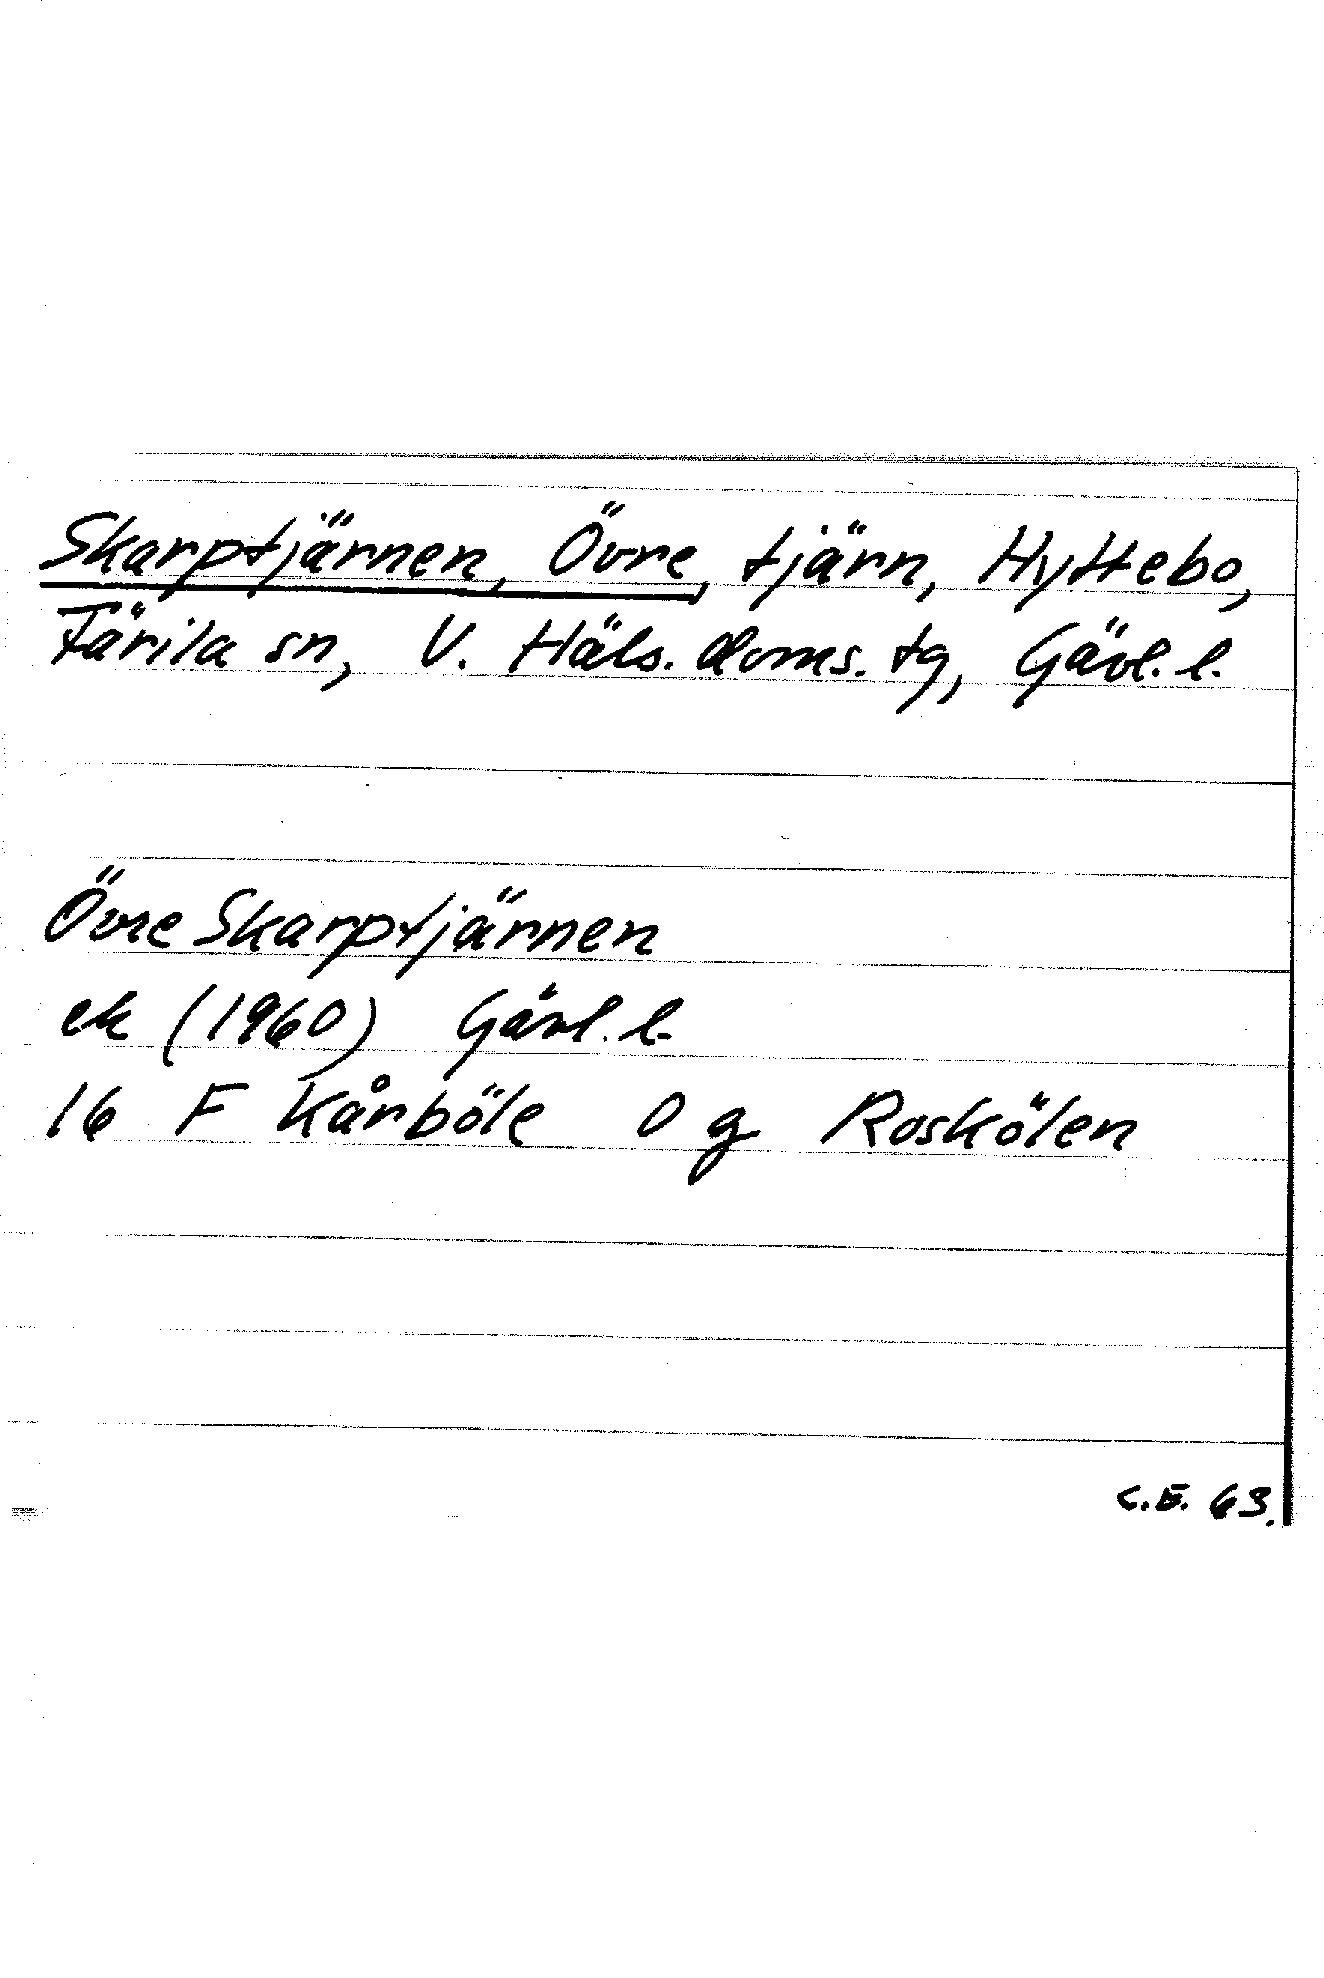 Skarptjärnen, Övre, tjärn, Hyttebo,
Färila sn, V. Häls. doms. tg, Gävl. l.
Övre Skarptjärnen
ek (1960) Gävl. l.
16 F Kårböle 0 g Roskölen
C.E. 63.